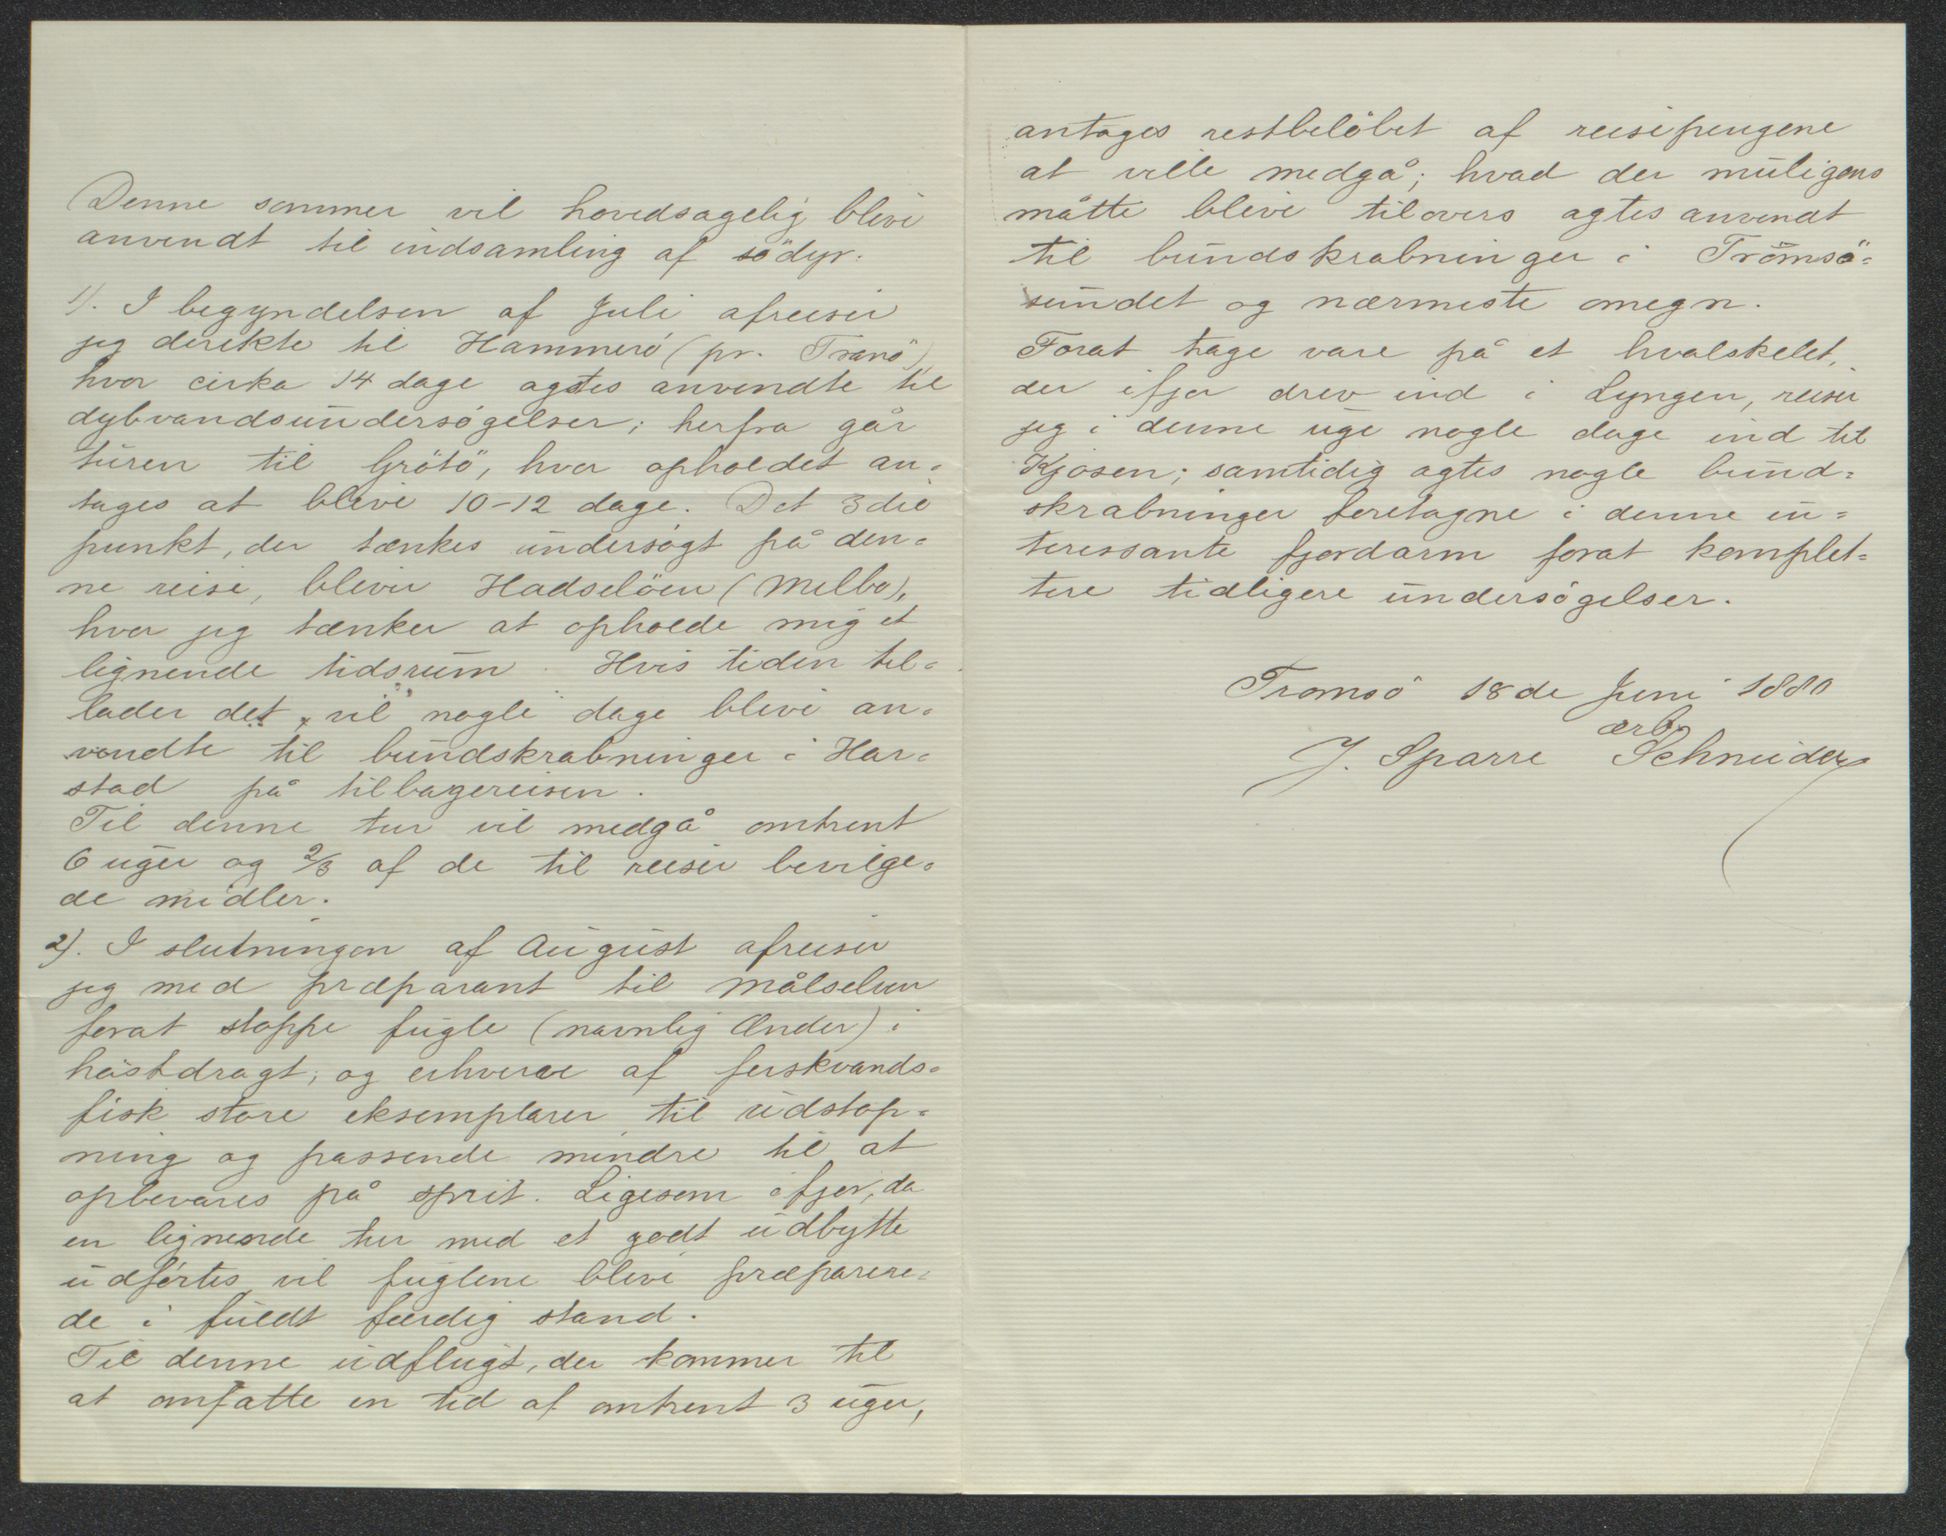 Denne sommer vil hovedsagelig blive
anvendt til indsamling af södyr.
1). I begyndelsen af Juli afreiser
jeg direkte til Hammerö (pr. Tranö)
hvor cirka 14 dage agtes anvendte til
dybvandsundersøgelser; herfra går
turen til Grötö, hvor opholdet an=
tages at blive 10-12 dage. Det 3die
punkt, der tænkes undersøgt på den=
ne reise, bliver Hadselöen (Melbo),
hvor jeg tænker at opholde mig et
lignende tidsrum. Hvis tiden til=
lader det, vil nogle dage blive an=
vendte til bundskrabninger i Har=
stad på tilbagereisen.
Til denne tur vil medgå omtrent
6 uger og 2/3 af de til reiser bevilge=
de midler.
2). I slutningen af August afreiser
jeg med præparant til Målselven
forat stoppe fugle (navnlig Ænder) i
høstdragt, og erhverve af ferskvands=
fisk store eksemplarer til udstop=
ning og passende mindre til at
opbevares på sprit. Ligesom ifjor, da
en lignende tur med et godt udbytte
udförtes, vil fuglene blive præparere=
de i fuldt færdig stand.
Til denne udflugt, der kommer til
at omfatte en tid af omtrent 3 uger,
antages restbelöbet af reisepengene
at ville medgå; hvad der muligens
måtte blive tilovers agtes anvendt
til bundskrabninger i Tromsö=
sundet og nærmeste omegn.
Forat tage vare på et hvalskelet,
der ifjor drev ind i Lyngen, reiser
jeg i denne uge nogle dage ind til
Kjosen; samtidig agtes nogle bund=
skrabninger foretagne i denne in=
teressante fjordarm forat komplet=
tere tidligere undersögelser.
Tromsö 18de Juni 1880
ærb.
J. Sparre Schneider